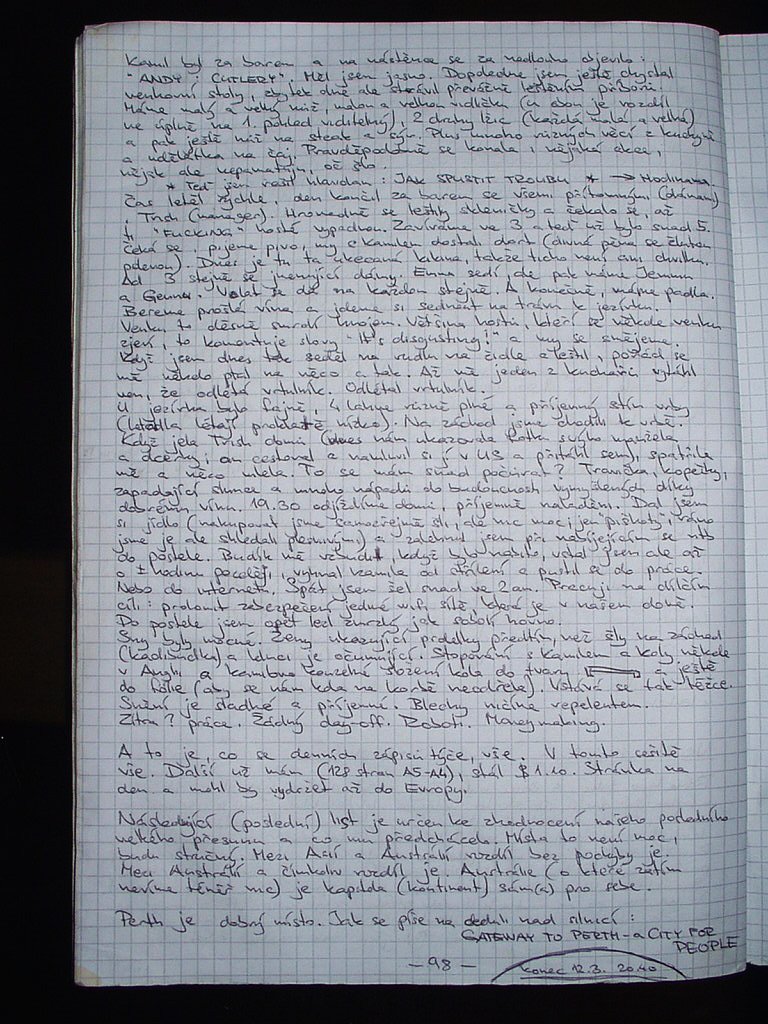 Kamil byl za barem a na nástěnce se za nedlouho objevilo:
"ANDY: CUTLERY". Měl jsem jasno. Dopoledne jsem ještě chystal
venkovní stoly, zbytek dne ale strávil převážně leštěním příborů.
Máme malý a velký nůž, malou a velkou vidličku (u obou je rozdíl
na 1. pohled viditelný), 2 druhy lžic (každá malá a velká)
a pak ještě nůž na steak a sýr. Plus mnoho různých věcí z kuchyně
a udělátka na čaj. Pravděpodobně se konala i nějaká akce,
nějak ale nepamatuji, oč šlo.
* Teď jsem řešil hlavolam: JAK SPUSTIT TROUBU * → Hodinama.
Čas letěl rychle, den končil za barem se všemi přítomnými (dámami)
, Trish (manager). Hromadně se leštily skleničky a čekalo se, až
ti "FUCKING" hosté vypadnou. Zavíráme ve 3 a teď už bylo snad 5.
Čeká se, pijeme pivo, my s Kamilem dostali dort (divná pěna se žlutou
polevou). Dnes je tu ta ukecaná kilma, takže ticho není ani chvilku.
Ad 3 stejně se jmenující dámy. Emma sedí, ale pak máme Jemmu
a Gemmu. Volat se dá na každou stejně. A konečně, máme padla.
Bereme prošlá vína a jdeme si sednout na trávu k jezírku.
Venku to děsně smrdí hnojem. Většina hostů, kteří se někde venku
zjeví, to komentuje slovy "It's disgusting!" a my se smějeme.
Když jsem dnes tak seděl na rudlu na židle a leštil, pořád se
mě někdo ptal na něco a tak. Až mě jeden z kuchařů vytáhl
ven, že odlétá vrtulník. Odlétal vrtulník.
U jezírka bylo fajně, 4 lahve různě plné a příjemný stín vrby
(letadla létají proklatě nízko). Na záchod jsme chodili k vrbě.
Když jela Trish domů (dnes nám ukazovala fotku svýho manžela
a dcérky; on cestoval a nabalil si jí v US a přitáhl sem), spatřila
mě a něco mlela. To se mám snad počůrat? Travička, kopečky,
zapadající slunce a mnoho nápadů do budoucnosti vymyšlených díky
dobrému vínu. 19.30 odjíždíme domů, příjemně naladěni. Dal jsem
si jídlo (nakupovat jsme samozřejmě šli, ale nic moc, jen piškoty, ráno
jsme je ale shledali plesnivými) a zalehnul jsem při nabíjejícím se ntb
do postele. Budík mě vzbudil, když bylo nabito, vstal jsem ale až
o ± hodinu později, vyhnal Kamila od střílení a pustil se do práce.
Nebo do internetu. Spát jsem šel snad ve 2am. Pracuji na dílčím
cíli: prolomit zabezpečení jedné wifi sítě, která je v našem domě.
Do postele jsem opět lezl zmrzlý jak sobolí hovno.
Sny byly mocné. Ženy ukazující prdelky předtím, než šly na záchod
(kadibudka) a kluci je očumující. Stopování s Kamilem a koly někde
v Anglii a Kamilovo kouzelné složení kola do tvaru a ještě
do fólie (aby se nám kola na korbě neodřela). Vstává se tak těžce.
Snění je sladké a příjemné. Blechy ničíme repelentem.
Zítra? práce. Žádný day-off. Roboti. Moneymaking.

A to je, co se denních zápisů týče, vše. V tomto sešitě
vše. Další už mám (128 stran A5-A4), stál $1.10. Stránka na
den a mohl by vydržet až do Evropy.

Následující (poslední) list je určen ke zhodnocení našeho posledního
velkého přesunu a co mu předcházelo. Místa to není moc,
budu stručný. Mezi Asií a Austrálií rozdíl bez pochyby je.
Mezi Austrálií a čímkoliv rozdíl je. Austrálie (o které zatím
nevíme téměř nic) je kapitola (kontinent) sám(a) pro sebe.

Perth je dobrý místo. Jak se píše na ceduli nad silnicí:
GATEWAY TO PERTH - a CITY FOR
PEOPLE
- 98 -
konec 12.3. 20.40